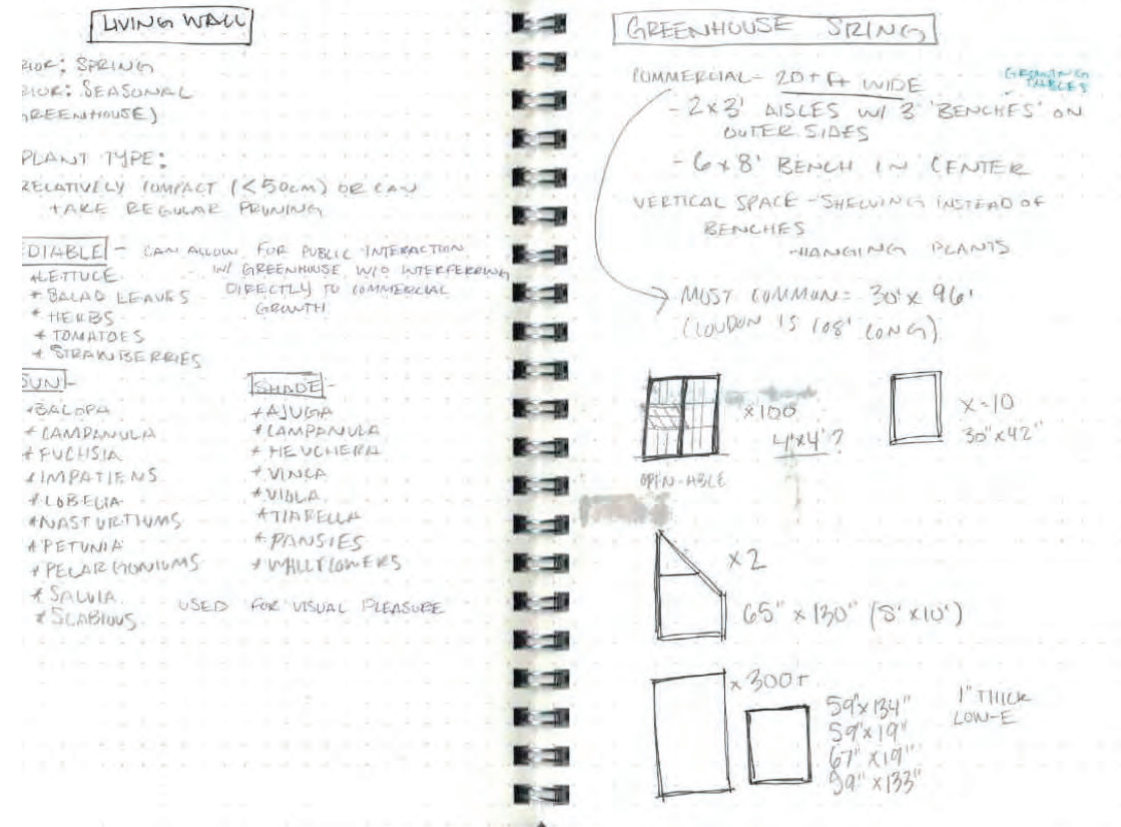 LIVING WALL
RIOR: SPRING
RIOR: SEASONAL
GREENHOUSE)
PLANT TYPE:
RELATIVELY COMPACT (<50cm) OR CAN
TAKE REGULAR PRUNING
EDIABLE - CAN ALLOW FOR PUBLIC INTERACTION
W/ GREENHOUSE W/O INTERFERRING
DIRECTLY TO COMMERCIAL
GROWTH
*LETTUCE
* SALAD LEAVES
* HERBS
* TOMATOES
* STRAWBERRIES
SUN -
*BACOPA
*CAMPANULA
*FUCHSIA
*IMPATIENS
*LOBELIA
*NASTURTIUMS
*PETUNIA
*PELARGONIUMS
*SALVIA
*SCABIOUS
SHADE -
*AJUGA
*CAMPANULA
*HEUCHERA
*VINCA
*VIOLA
*TIARELLA
*PANSIES
*WALLFLOWERS
USED FOR VISUAL PLEASURE
GREENHOUSE SIZING
COMMERCIAL - 20+ Ft WIDE
GROWING
TABLES
- 2x3' AISLES W/ 3' BENCHES ON
OUTER SIDES
- 6x8' BENCH IN CENTER
VERTICAL SPACE - SHELVING INSTEAD OF
BENCHES
-HANGING PLANTS
MOST COMMON= 30' x 96'
(LOUDON IS 108' LONG)
x100
4'x4'?
OPEN-ABLE
x~10
30"x42"
x2
65" x 130" (5' x10')
x300+
59"x134"
59"x19"
67"x19"
99"x133"
1" THICK
LOW-E